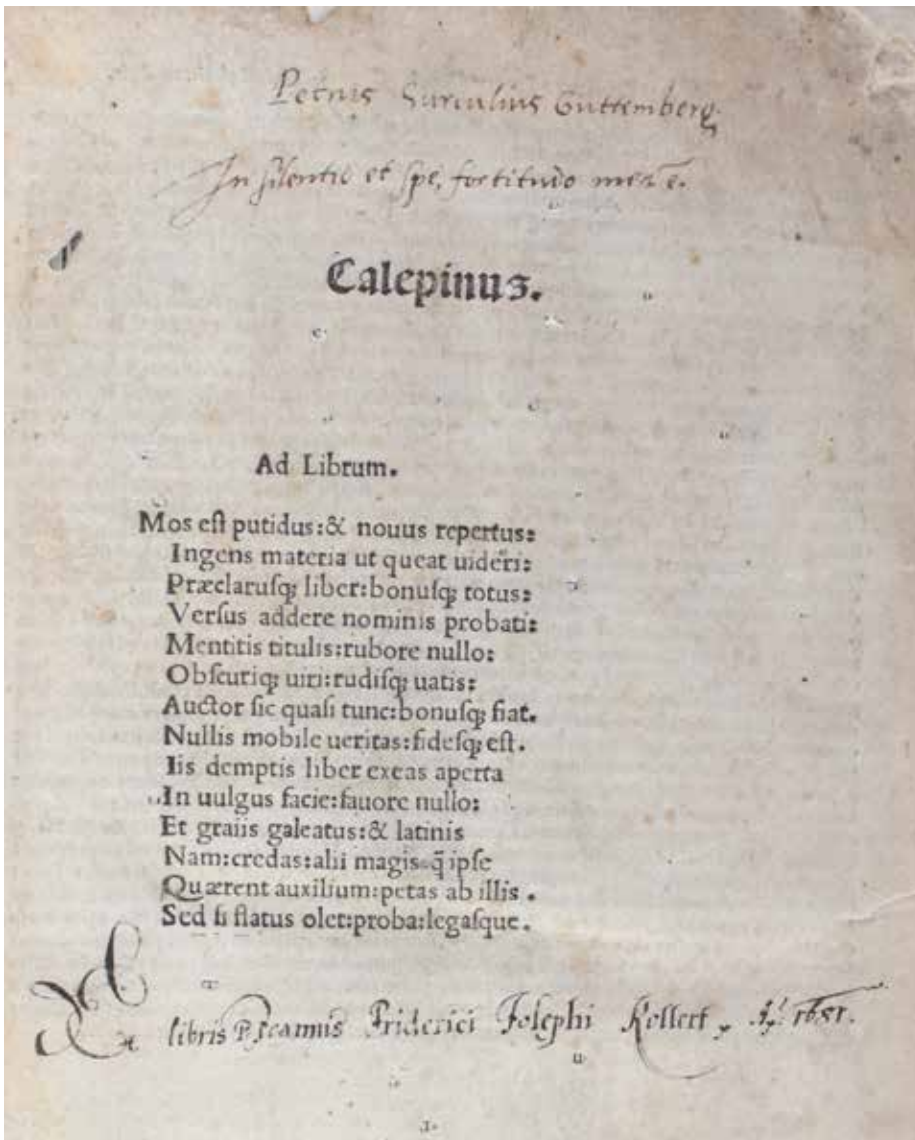 Petrus Surculius Guttemberg.
In silentio et spe, fortitudo mea ē.
Calepinus.
Ad Librum.
Mos eſt putidus:& nouus repertus:
Ingens materia ut queat uideri:
Præclaruſq; liber:bonuſq; totus:
Verſus addere nominis probati:
Mentitis titulis:rubore nullo:
Obſcuriq; uiri:rudiſq; uatis:
Auctor ſic quaſi tunc:bonuſq; fiat.
Nullis mobile ueritas:fideſq; eſt.
Iis demptis liber exeas aperta
In uulgus facie:fauore nullo:
Et graiis galeatus:& latinis
Nam:credas:alii magis q̄ ipſe
Quærent auxilium:petas ab illis.
Sed ſi flatus olet:proba:legaſque.
Ex libris Friderici Joſephi Kellert